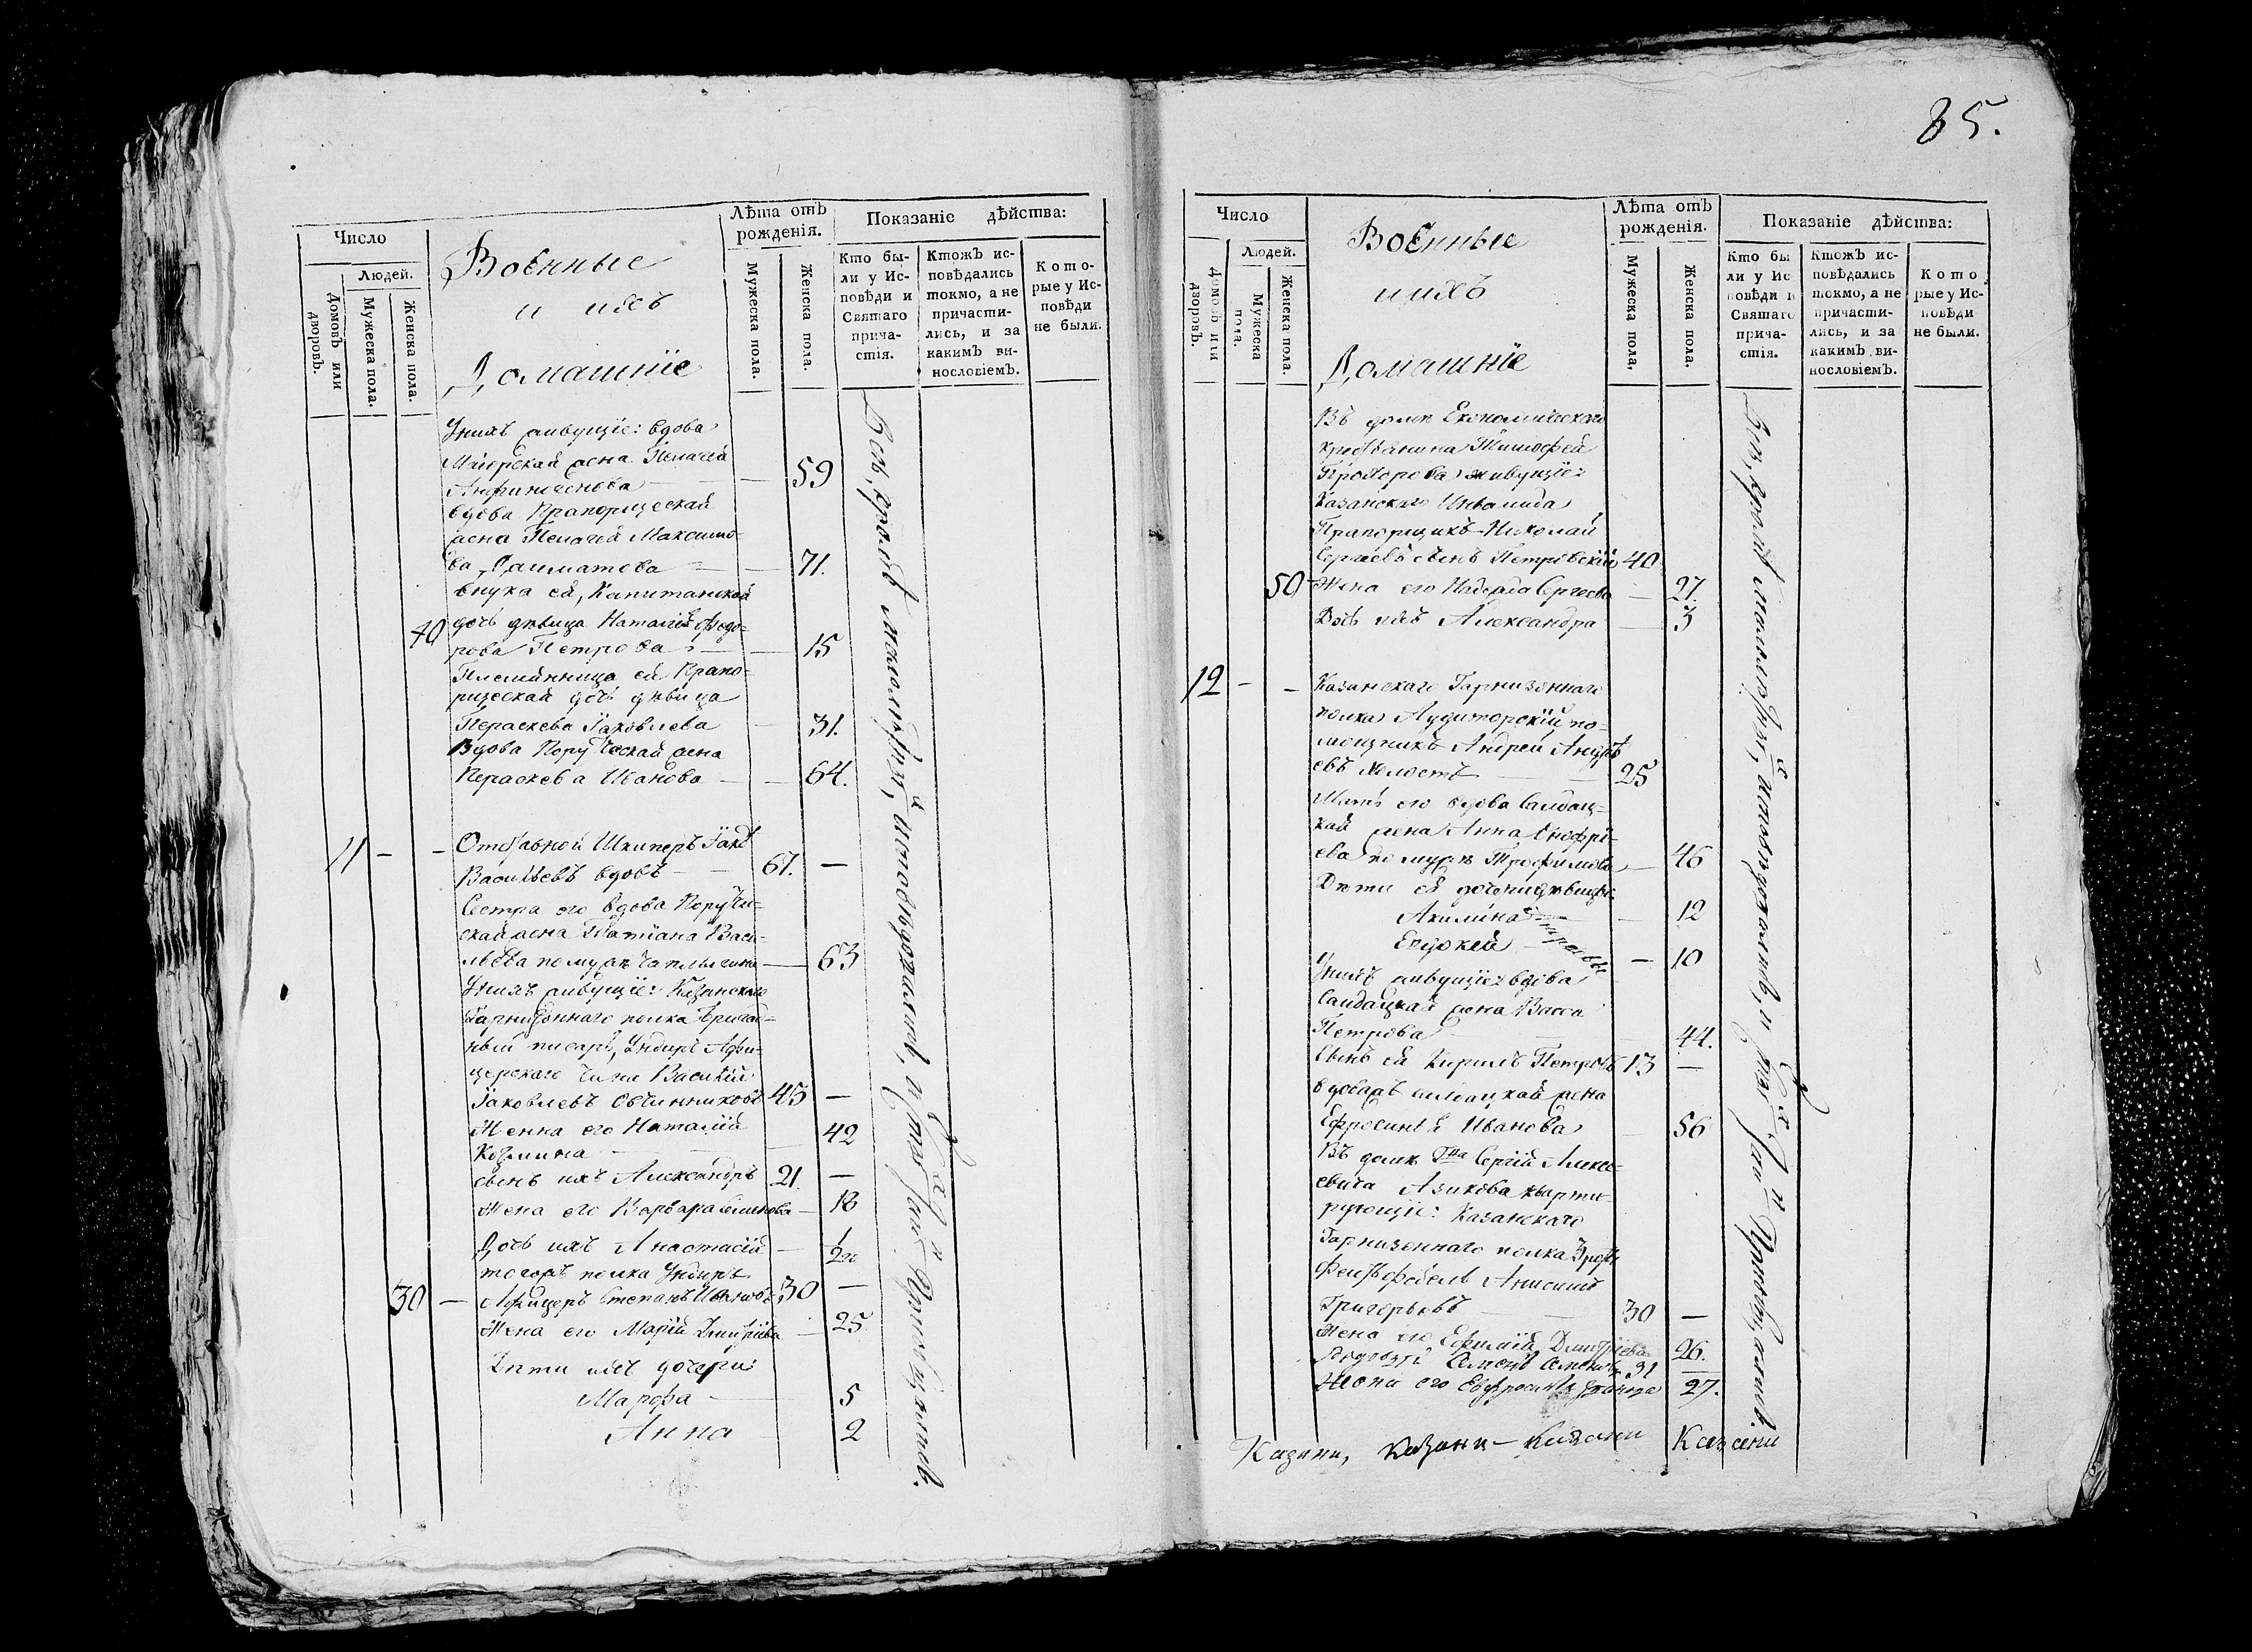 85.
Число
Людей.
Домовъ или дворовъ.
Мужеска пола.
Женска пола.
Военные
и ихъ
Домашніе
Лѣта отъ
рожденія.
Мужеска пола.
Женска пола.
Показаніе дѣйства:
Кто бы-
ли у Ис-
повѣди и
Святаго
прича-
стія.
Ктожъ ис-
повѣдались
токмо, а не
причасти-
лись, и за
какимъ ви-
нословіемъ.
Кото-
рые у Ис-
повѣди
не были.
Унихъ живущіе: вдова
Маіорская жена Пелагея
59
вдова Прапорщеская
жена Пелагея Максимо-
ва 71.
внука ея, Капитанская
40 дочь дѣвица Наталія Федо-
рова Петрова 15
Племянница ея Прапо-
рщеская дочь дѣвица
Параскева Іаковлева 31.
Вдова Поруческая жена
Параскева Иванова 64.
11 - - Отставной Шкиперъ Іаковъ
Васильевъ вдовъ 67. —
Сестра его вдова Поручи-
ская жена Татіана Васи-
льева по мужѣ 63
Унихъ живущіе: Казанскаго
Гарнизоннаго полка Бригад-
ный писарь, Ундиръ Афи-
церскаго чина Василій
Іаковлевъ Овчинниковъ 45 —
Женна его Наталія 42
Козмина
сынъ ихъ Александръ 21. —
Жена его Варвара Семенова 18
Дочь ихъ Анастасія 1/2
тогожъ полка Ундиръ
30 — Афицеръ Степанъ Ивановъ 30 —
Жена его Марія Дмитріева 25
Дѣти ихъ дочери:
Марфа 5
Анна 2
Всѣ, кромѣ малолѣтных, исповѣдались, и Святых Таинъ Причащались.
Число
Людей.
Домовъ или дворовъ.
Мужеска пола.
Женска пола.
Военные
и ихъ
Домашніе
Лѣта отъ
рожденія.
Мужеска пола.
Женска пола.
Показаніе дѣйства:
Кто бы
ли у Ис
повѣди и
Святаго
прича-
стія.
Ктожъ ис-
повѣдались
токмо, а не
причасти-
лись, и за
какимъ ви-
нословіемъ.
Кото
рые у Ис-
повѣди
не были.
Въ домѣ Економическаго
крестьянина Тимофея
Прохорова живущіе:
Казанскаго Инвалида
Прапорщикъ Николай
Сергіевъ сынъ Петровскій 40
50 Жена его Надежда Сергеева — 27.
Дочь ихъ Александра — 3
12 - - Казанскаго Гарнизоннаго
полка Аудиторскій по-
мощникъ Андрей Андрѣ
евъ холостъ 25
Мать его вдова салдац-
кая жена Анна Онофрі-
ева по мужѣ Трофимова — 46
Дѣти ея дочери дѣвицы:
Акилина — 12
Евдокея — 10
Андреевы
Унихъ живущіе: вдова
Салдацкая жена Васса
Петрова 44.
Сынъ ея Кирилъ Петровъ 13 —
вдова салдацкая жена
Ефросинія Иванова 56
Въ домѣ Гна Сергія Алексе-
евича Азикова кварти-
рующіе: Казанскаго
Гарнизоннаго полка
Фелтфебель Анисимъ
Григорьевъ 30 —
Жена его Ефимія Дмитріева 26.
Рядовой Семенъ Семеновъ 31
Жена его Евфросинія 27.
Всѣ, кромѣ малолѣтных, исповѣдались, и Святых Таин Причащались.
Казани, Казани — Казани Казани